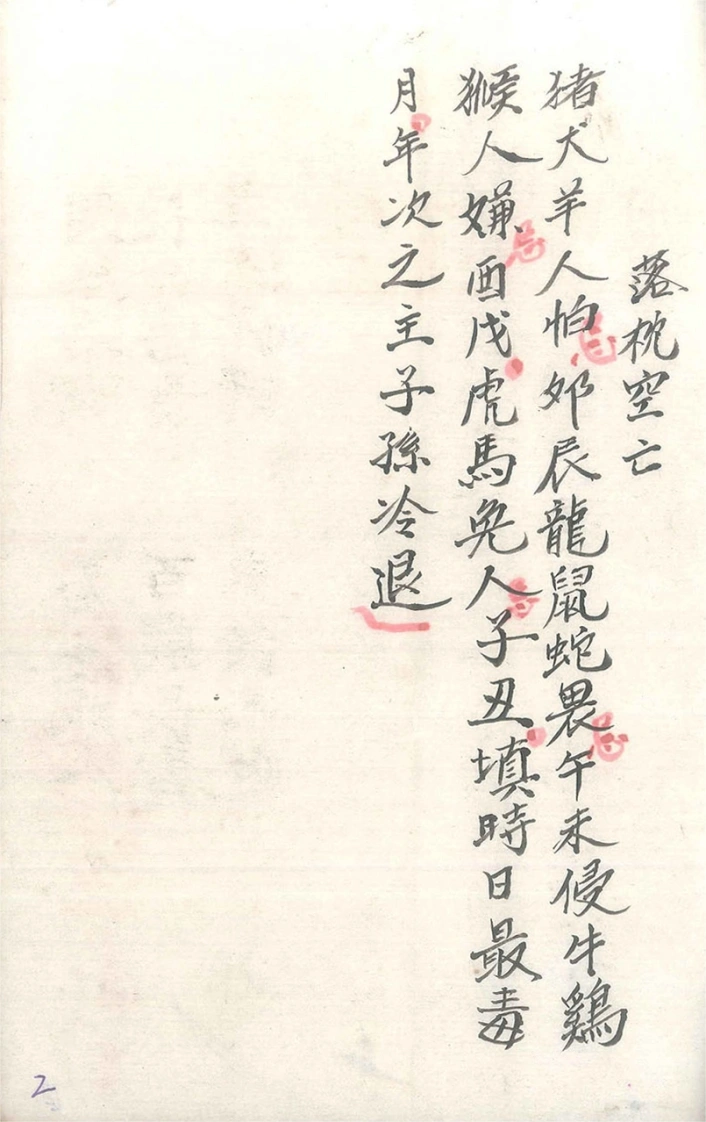 落枕空亡
猪犬羊人怕夘辰龍鼠蛇畏午未侵牛鷄
猴人嫌酉戌虎馬兔人子丑填時日最毒
月年次之主子孫冷退
忌
忌
忌
忌
2